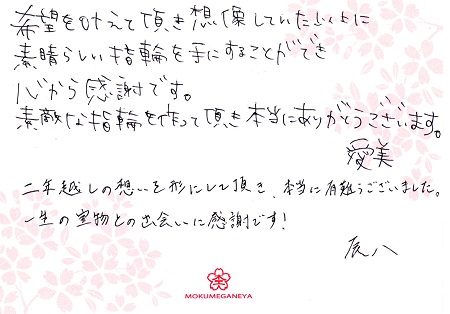 希望を叶えて頂き想像していた以上に
素晴らしい指輪を手にすることができ
心から感謝です。
素敵な指輪を作って頂き本当にありがとうございます。
愛美
二年越しの想いを形にして頂き、本当に有難うございました。
一生の宝物との出会いに感謝です!
辰八
MOKUMEGANEYA